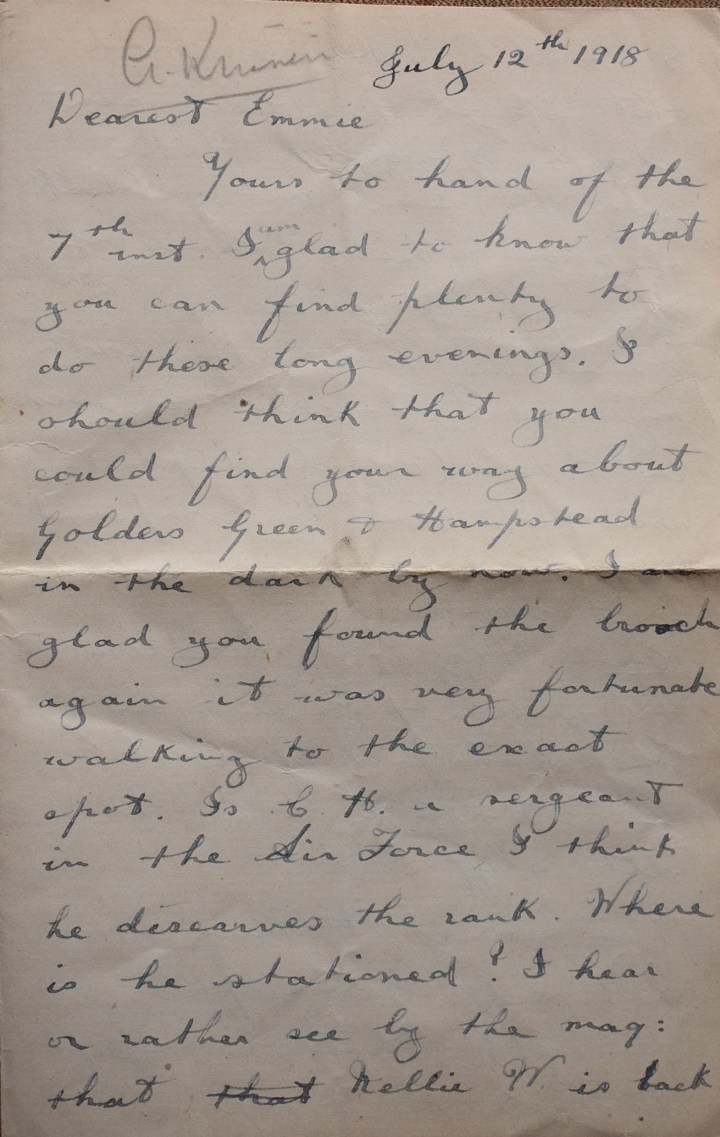 July 12th 1918
Dearest Emmie
Yours to hand of the
7th inst. I am glad to know that
you can find plenty to
do these long evenings. I
should think that you
could find your way about
Golders Green & Hampstead
in the dark by now. I am
glad you found the broach
again it was very fortunate
walking to the exact
spot. Is C. H. a sergeant
in the Air Force I think
he descarves the rank. Where
is he stationed? I hear
or rather see by the mag:
that that Nellie W is back